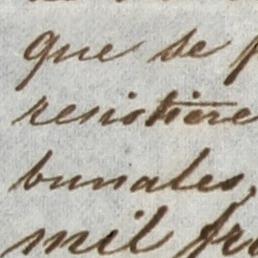 que se
resistiere
bunales,
mil